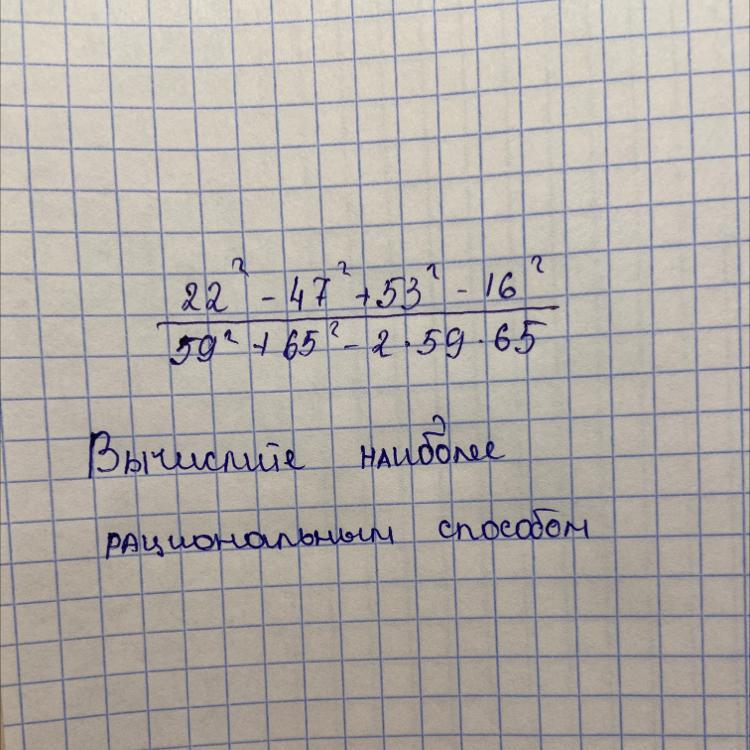 22² - 47² + 53² - 16²
59² + 65² - 2 · 59 · 65
Вычислите наиболее
рациональным способом